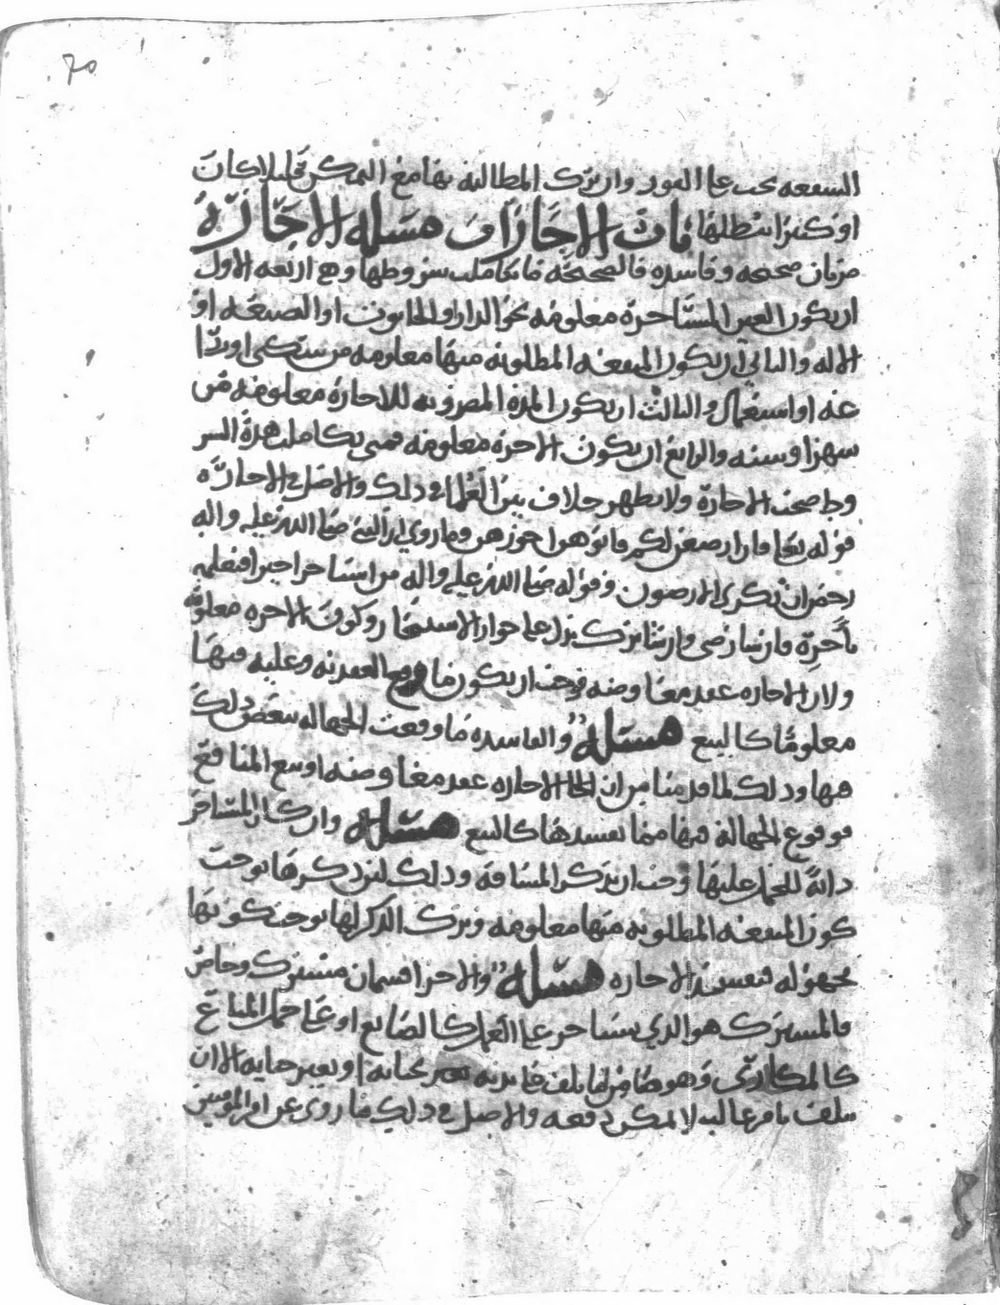 70
الشفعة تجب على الفور وان ترك المطالبة بها مع التمكن قليلا كان
او كثيرا بطلها باب الاجارات مسله الاجارة
ضربان صحيحه وفاسده فالصحيحة ما تكاملت شروطها وهي اربعه الاول
ان يكون العين المستاجرة معلومة نحو الدار او الحانوت او الصنيعة او
الاله والثاني ان يكون المنفعه المطلوبة منها معلومه من سكنى او
او استعمال والثالث ان يكون المدة المضروبه للاجارة معلومة من
شهر او سنه والرابع ان يكون الاجرة معلومة فمتى تكاملت هذه الشر
وط صحت الاجارة ولا يظهر خلاف بين العلما في ذلك والاصل في الاجارة
قوله تعالى فان ارضعن لكم فاتوهن اجورهن وما روي ان النبي صلى الله عليه واله
رخص ان تكرى الارضون وقوله صلى الله عليه واله من استاجر اجيرا فليعلمه
باجرته فان شا رضي وان شا ترك يدل على جواز الاستيجار وكون الاجره معلومة
ولان الاجاره عقد معاوضه فوجب ان يكون ما وقع العقد به وعليه فيها
معلوما كالبيع مسله والفاسده ما وقعت الجهاله ببعض ذلك
فيها وذلك لما قدمنا من ان الاجاره عقد معاوضه او بيع المنافع
فوقوع الجهالة فيها مما يفسدها كالبيع مسله وان كان المستاجر
دابة للحمل عليها وجب ان يذكر المسافة وذلك لان ذكرها يوجب
كون المنفعه المطلوبه منها معلومه وترك الذكر لها يوجب كونها
مجهوله فتفسد الاجاره مسله والاجرا قسمان مشترك وخاص
فالمشترك هو الذي يستاجر على العمل كالصايع او على حمل المتاع
كالمكاري وهو ضامن لما تلف بجنايه او بغير جنايه الا ان
يتلف بامر غالب لا يمكن دفعه والاصل في ذلك ما روي عن امير المومنين